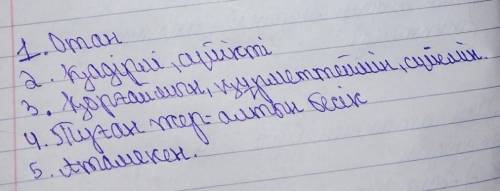 1. Отан
2. Қадірлі, сүйікті
3. Қорғаймын, құрметтеймін, сүйемін.
4. Туған жер-алтын бесік
5. Атамекен.